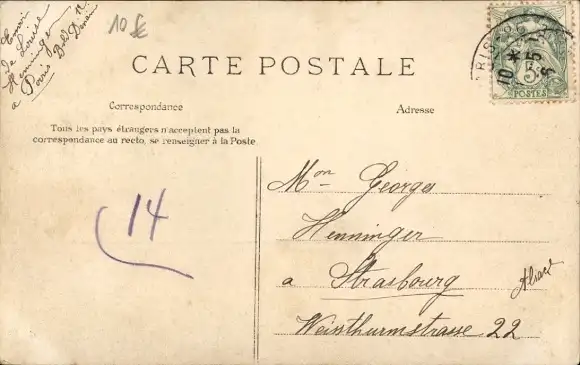 Envoi
de Louise
Henninger
a Paris
10
CARTE POSTALE
Correspondance
Adresse
Tous les pays étrangers n'acceptent pas la
correspondance au recto, se renseigner à la Poste
14
Mon Georges
Henninger
a Strasbourg
Alsace
Weissthurmstrasse 22
5
POSTES
10